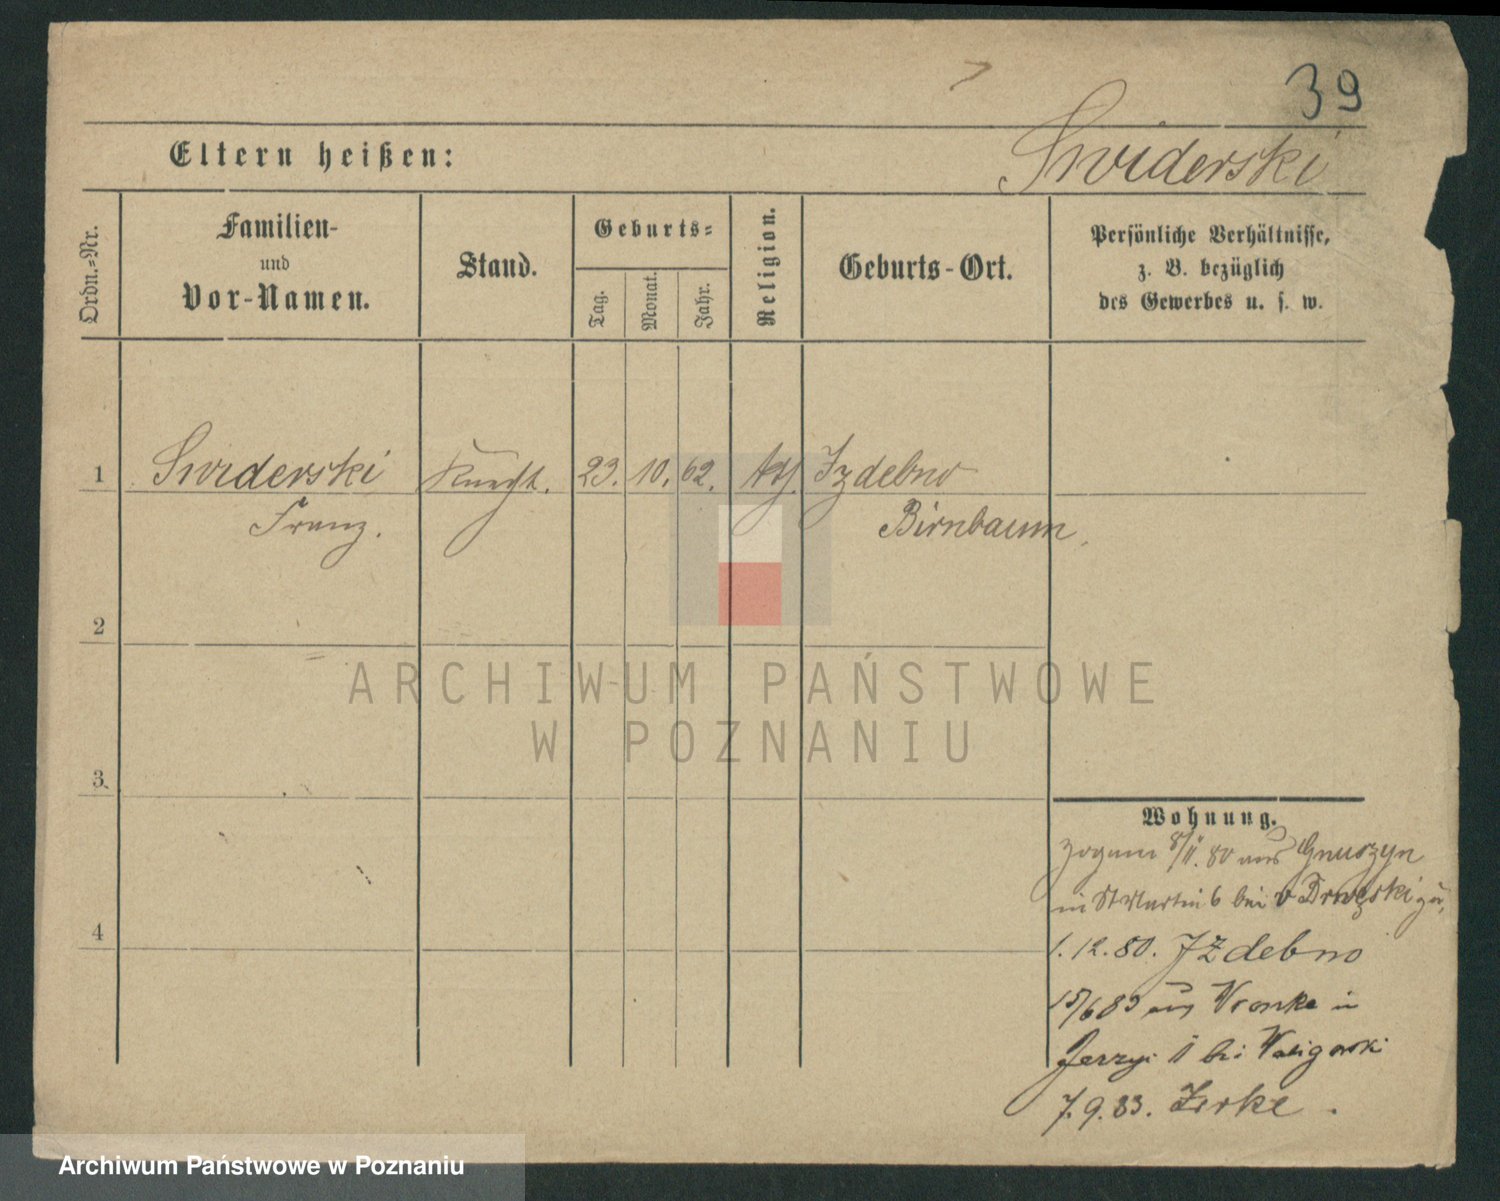 39
Swiderski
Eltern heißen:
Ordn.=Nr.
Familien-
und
Vor-Namen.
Stand.
Geburts=
Tag.
Monat.
Jahr.
Religion.
Geburts-Ort.
Persönliche Verhältnisse,
z. B. bezüglich
des Gewerbes u. s. w.
1 Swiderski Knecht. 23. 10. 62. kath. Izdebno
Franz. Birnbaum.
2
3.
4
Wohnung.
8/11. 80 aus Gnuszyn
in St Martin 6 bei v
1. 12. 80. Izdebno
15/6 83 aus Wronke in
Jerzyc bei
7. 9. 83. Zirke.
ARCHIWUM PAŃSTWOWE
W POZNANIU
Archiwum Państwowe w Poznaniu